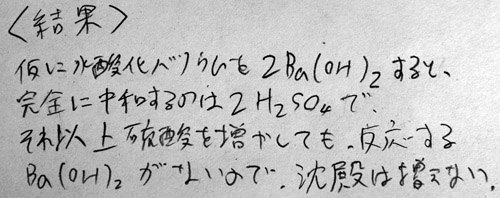 〈結果〉
仮に水酸化バリウムを2Ba(OH)₂すると、
完全に中和するのは2H₂SO₄で、
それ以上硫酸を増やしても、反応する
Ba(OH)₂がないので、沈殿は増えない。